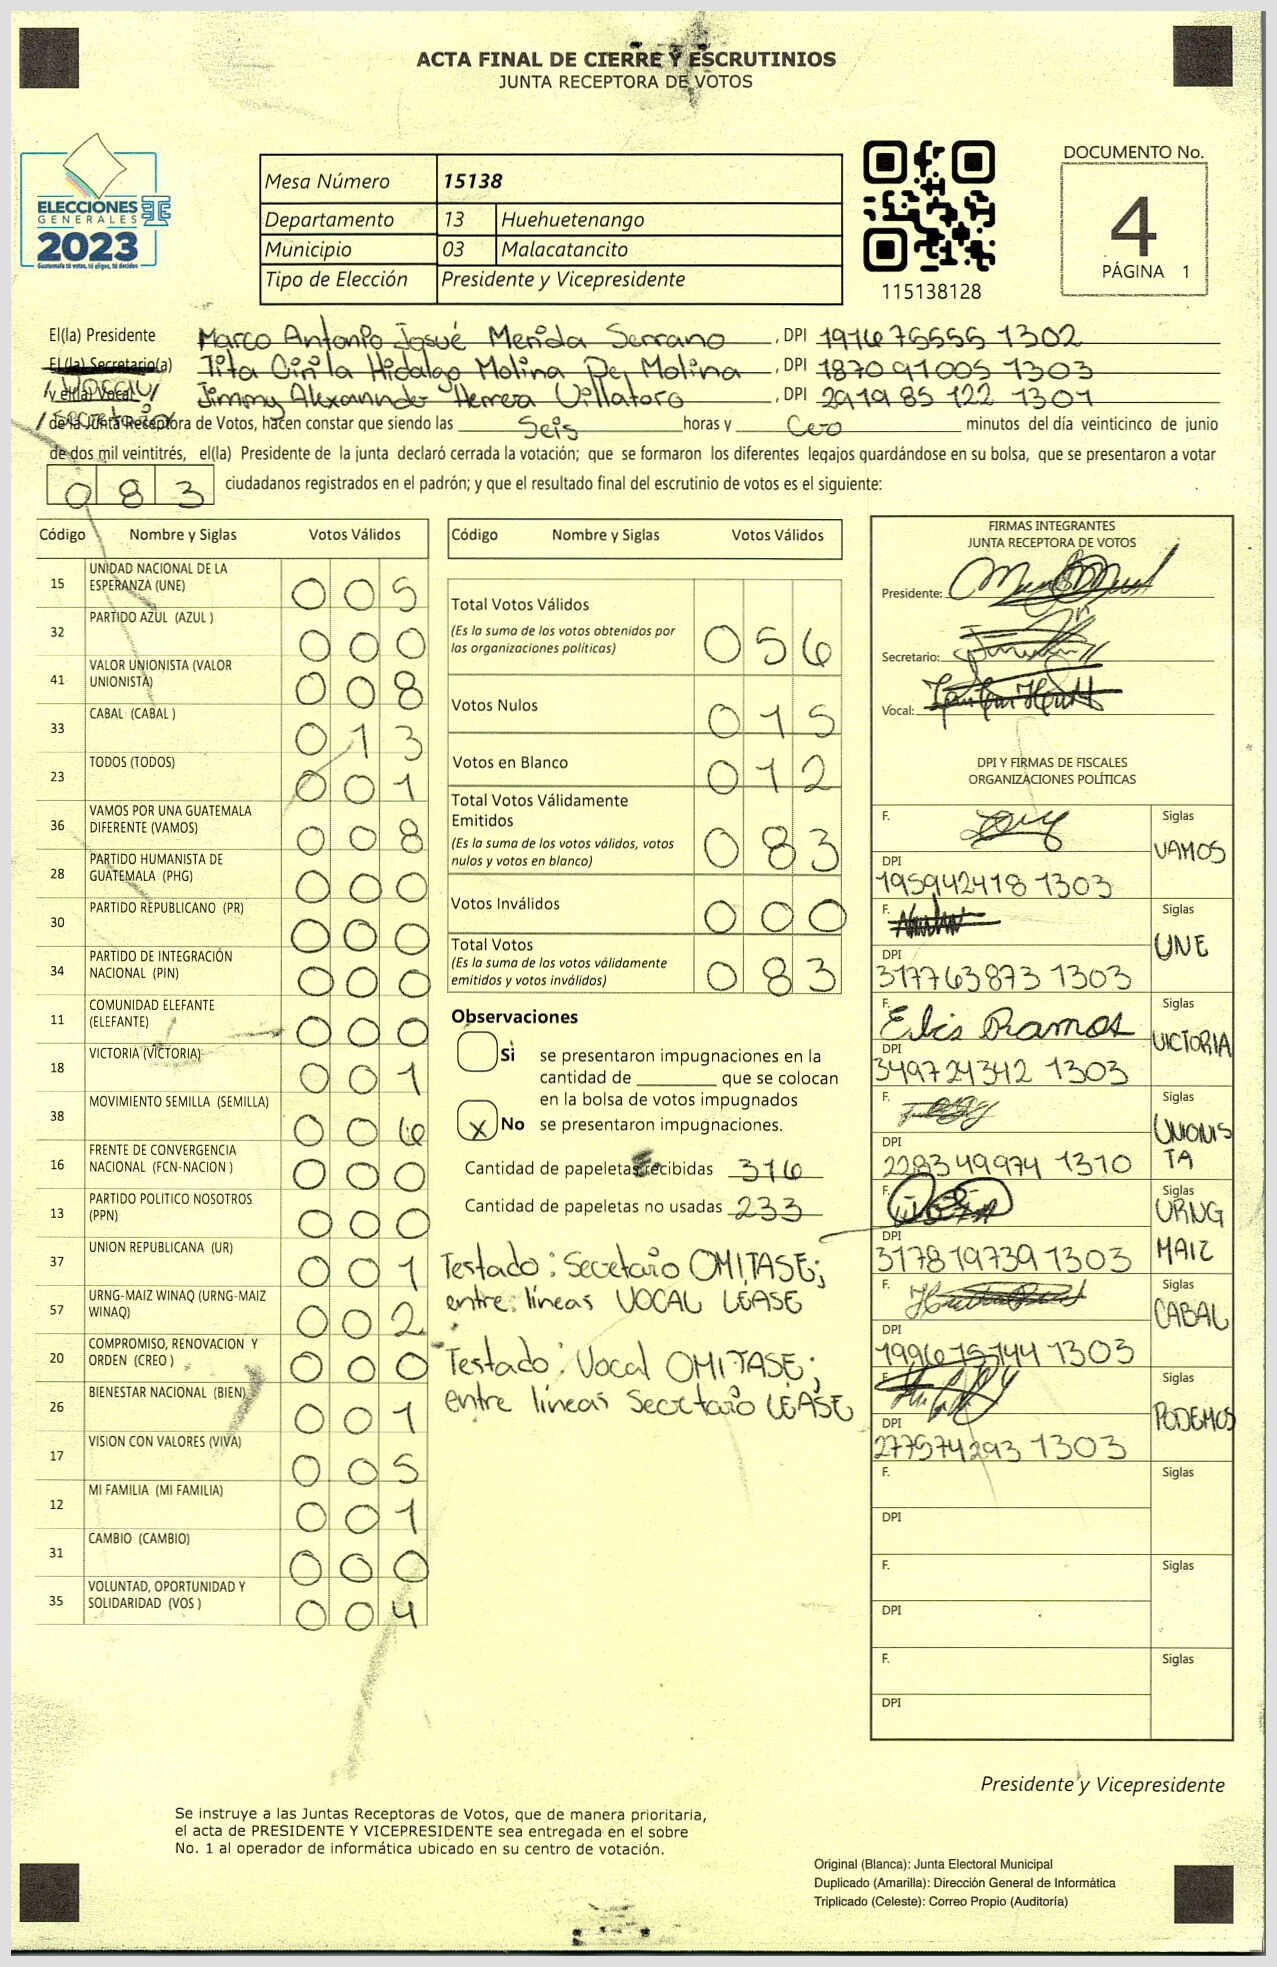 ACTA FINAL DE CIERRE Y ESCRUTINIOS
JUNTA RECEPTORA DE VOTOS
ELECCIONES
GENERALES
2023
Guatemala tú votas, tú eliges, tú decides
Mesa Número 15138
Departamento 13 Huehuetenango
Municipio 03 Malacatancito
Tipo de Elección Presidente y Vicepresidente
115138128
DOCUMENTO No.
4
PÁGINA 1
El(la) Presidente Marco Antonio Josué Merida Serrano, DPI 191675555 1302
El (la) Secretario(a) Tita Cirila Hidalgo Molina De Molina, DPI 187091005 1303
y el(la) Vocal Jimmy Alexannder Herrera Villatoro, DPI 291985122 1301
de la Junta Receptora de Votos, hacen constar que siendo las Seis horas y Cero minutos del día veinticinco de junio
de dos mil veintitrés, el(la) Presidente de la junta declaró cerrada la votación; que se formaron los diferentes legajos guardándose en su bolsa, que se presentaron a votar
083 ciudadanos registrados en el padrón; y que el resultado final del escrutinio de votos es el siguiente:
Código Nombre y Siglas Votos Válidos
15 UNIDAD NACIONAL DE LA ESPERANZA (UNE) 005
32 PARTIDO AZUL (AZUL ) 000
41 VALOR UNIONISTA (VALOR UNIONISTA) 008
33 CABAL (CABAL ) 013
23 TODOS (TODOS) 001
36 VAMOS POR UNA GUATEMALA DIFERENTE (VAMOS) 008
28 PARTIDO HUMANISTA DE GUATEMALA (PHG) 000
30 PARTIDO REPUBLICANO (PR) 000
34 PARTIDO DE INTEGRACIÓN NACIONAL (PIN) 000
11 COMUNIDAD ELEFANTE (ELEFANTE) 000
18 VICTORIA (VICTORIA) 001
38 MOVIMIENTO SEMILLA (SEMILLA) 006
16 FRENTE DE CONVERGENCIA NACIONAL (FCN-NACION ) 000
13 PARTIDO POLITICO NOSOTROS (PPN) 000
37 UNION REPUBLICANA (UR) 001
57 URNG-MAIZ WINAQ (URNG-MAIZ WINAQ) 002
20 COMPROMISO, RENOVACION Y ORDEN (CREO ) 000
26 BIENESTAR NACIONAL (BIEN) 001
17 VISION CON VALORES (VIVA) 005
12 MI FAMILIA (MI FAMILIA) 001
31 CAMBIO (CAMBIO) 000
35 VOLUNTAD, OPORTUNIDAD Y SOLIDARIDAD (VOS ) 004
Código Nombre y Siglas Votos Válidos
Total Votos Válidos 056
(Es la suma de los votos obtenidos por
las organizaciones políticas)
Votos Nulos 015
Votos en Blanco 012
Total Votos Válidamente
Emitidos 083
(Es la suma de los votos válidos, votos
nulos y votos en blanco)
Votos Inválidos 000
Total Votos 083
(Es la suma de los votos válidamente
emitidos y votos inválidos)
Observaciones
Sì se presentaron impugnaciones en la
cantidad de ________ que se colocan
en la bolsa de votos impugnados
X No se presentaron impugnaciones.
Cantidad de papeletas recibidas 316
Cantidad de papeletas no usadas 233
Testado: Secretario OMITASE;
entre líneas VOCAL LÉASE
Testado: Vocal OMITASE;
entre líneas Secretario LÉASE
FIRMAS INTEGRANTES
JUNTA RECEPTORA DE VOTOS
Presidente:
Secretario:
Vocal:
DPI Y FIRMAS DE FISCALES
ORGANIZACIONES POLÍTICAS
F. Siglas
VAMOS
DPI
195942418 1303
F. Siglas
UNE
DPI
317763873 1303
F. Ramos Siglas
VICTORIA
DPI
349724342 1303
F. Siglas
UNIONIS
TA
DPI
228349974 1310
F. Siglas
URNG
MAIZ
DPI
317819739 1303
F. Siglas
CABAL
DPI
199615144 1303
F. Siglas
PODEMOS
DPI
277574293 1303
F. Siglas
DPI
F. Siglas
DPI
F. Siglas
DPI
Presidente y Vicepresidente
Se instruye a las Juntas Receptoras de Votos, que de manera prioritaria,
el acta de PRESIDENTE Y VICEPRESIDENTE sea entregada en el sobre
No. 1 al operador de informática ubicado en su centro de votación.
Original (Blanca): Junta Electoral Municipal
Duplicado (Amarilla): Dirección General de Informática
Triplicado (Celeste): Correo Propio (Auditoría)